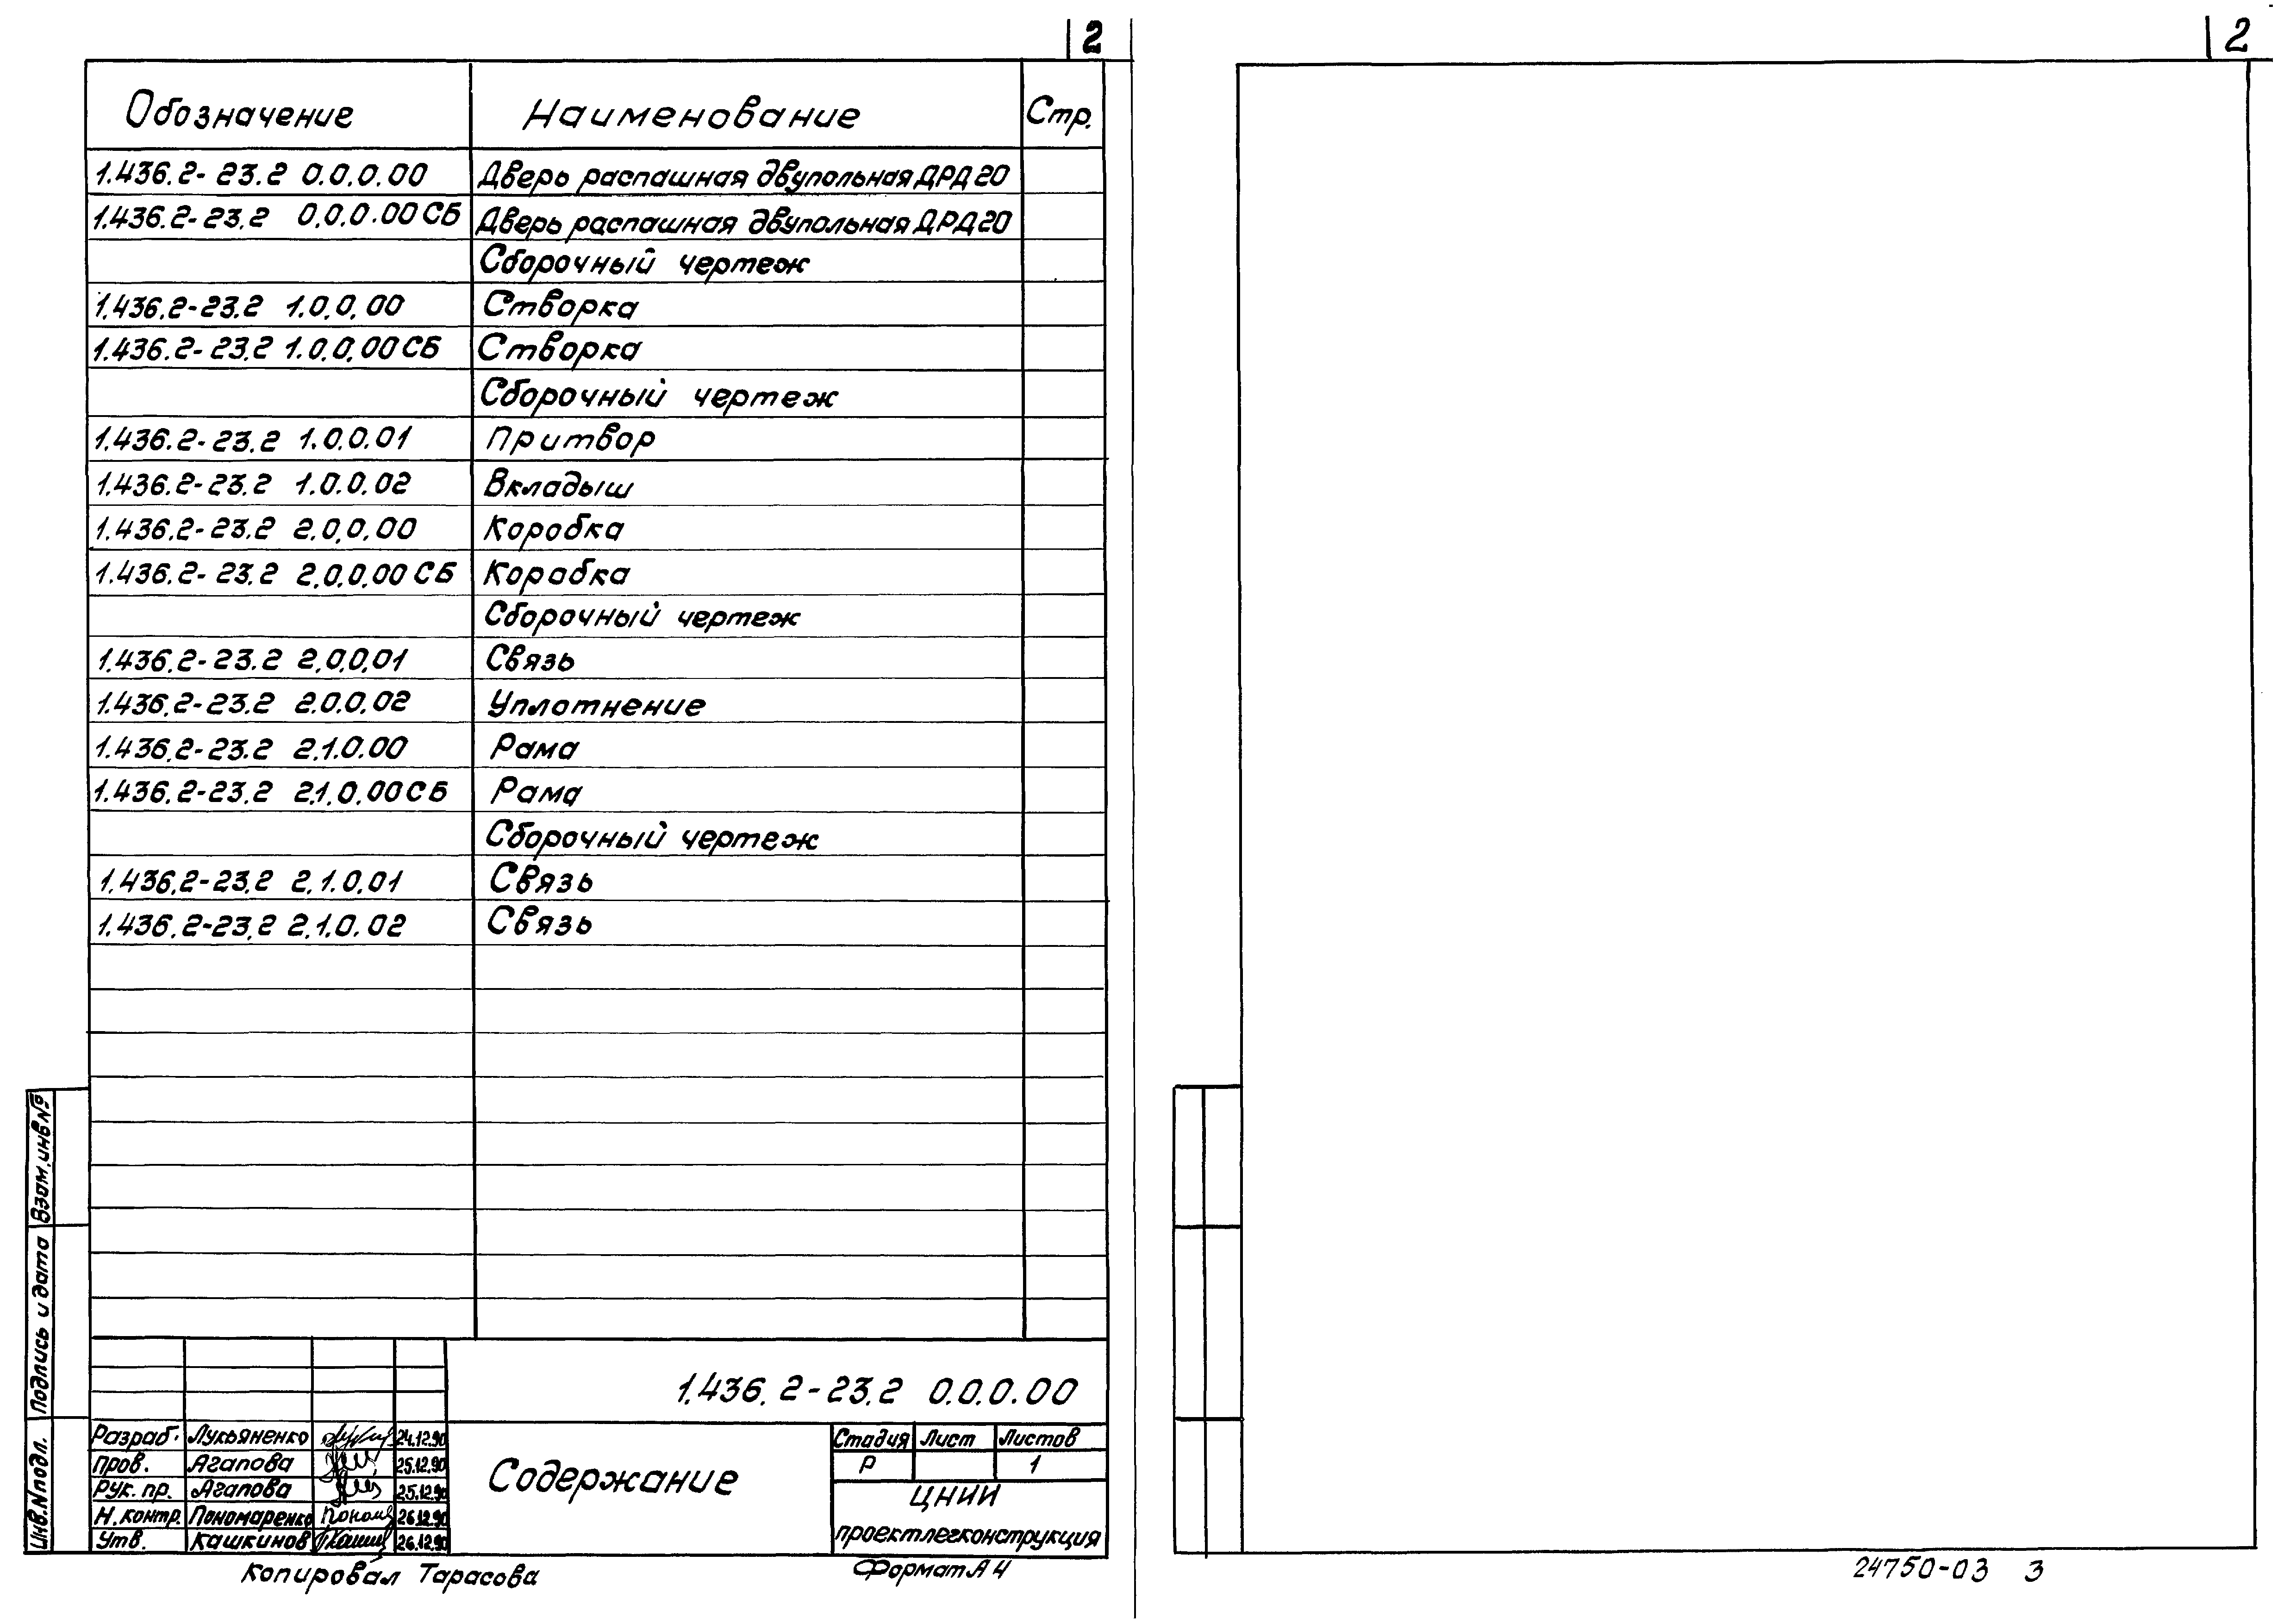 2
2
Обозначение Наименование Стр.
1.436.2-23.2 0.0.0.00 Дверь распашная двупольная ДРД20
1.436.2-23.2 0.0.0.00 СБ Дверь распашная двупольная ДРД20
Сборочный чертеж
1.436.2-23.2 1.0.0.00 Створка
1.436.2-23.2 1.0.0.00 СБ Створка
Сборочный чертеж
1.436.2-23.2 1.0.0.01 Притвор
1.436.2-23.2 1.0.0.02 Вкладыш
1.436.2-23.2 2.0.0.00 Коробка
1.436.2-23.2 2.0.0.00 СБ Коробка
Сборочный чертеж
1.436.2-23.2 2.0.0.01 Связь
1.436.2-23.2 2.0.0.02 Уплотнение
1.436.2-23.2 2.1.0.00 Рама
1.436.2-23.2 2.1.0.00 СБ Рама
Сборочный чертеж
1.436.2-23.2 2.1.0.01 Связь
1.436.2-23.2 2.1.0.02 Связь
Взам.инв№
Подпись и дата
Инв.N подл.
1.436.2-23.2 0.0.0.00
Разраб. Лукьяненко 24.12.90
Пров. Агапова 25.12.90
Рук. пр. Агапова 25.12.90
Н.контр. Пономаренко 26.12.90
Утв. Кашкинов 26.12.90
Содержание
Стадия Лист Листов
Р 1
ЦНИИ
проектлегконструкция
Копировал Тарасова Формат А4
24750-03 3